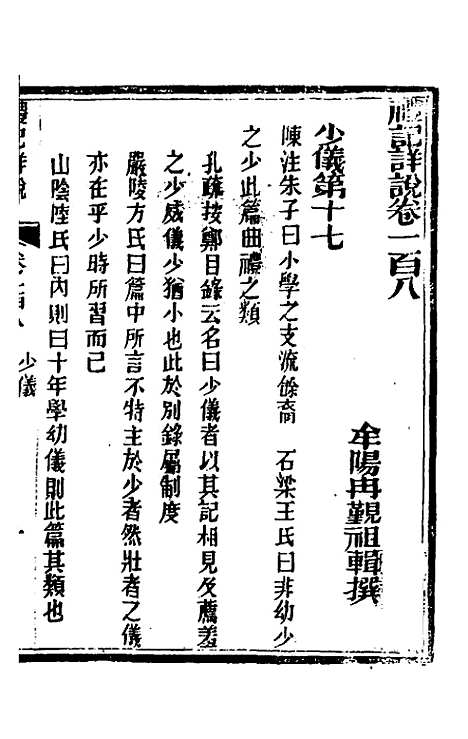 禮記詳說卷一百八
牟陽冉覲祖輯撰
少儀第十七
陳注朱子曰小學之支流餘裔　石梁王氏曰非幼少
之少此篇曲禮之類
孔疏按鄭目錄云名曰少儀者以其記相見及薦羞
之少威儀少猶小也此於別錄屬制度
嚴陵方氏曰篇中所言不特主於少者然壯者之儀
亦在乎少時所習而已
山陰陸氏曰內則曰十年學幼儀則此篇其類也
禮記詳說
卷一百八　少儀
一